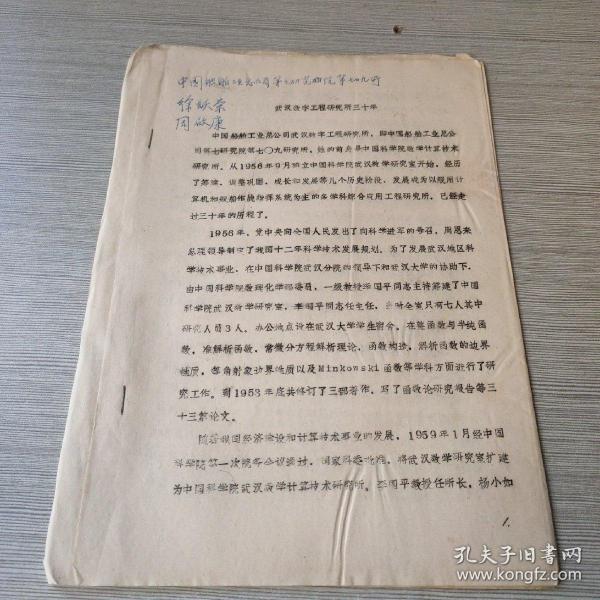 中国船舶工业总公司第七研究院第七〇九所
徐焕荣
周啟康
武汉数字工程研究所三十年
中国船舶工业总公司武汉数字工程研究所，即中国船舶工业总公
司第七研究院第七〇九研究所，她的前身是中国科学院数学计算技术
研究所。从1956年9月独立中国科学院武汉数学研究室开始，经历
了筹建、调整巩固、成长和发展等几个历史阶段，发展成为以舰用计
算机和舰船作战指挥系统为主的多学科综合应用工程研究所，已经走
过三十年的历程了。
1956年，党中央向全国人民发出了向科学进军的号召，周恩来
总理领导制定了我国十二年科学技术发展规划。为了发展武汉地区科
学技术事业，在中国科学院武汉分院的领导下和武汉大学的协助下，
由中国科学院数理化学部委员，一级教授李国平同志主持筹建了中国
科学院武汉数学研究室，李国平同志任主任，当时全室只有七人其中
研究人员3人，办公地点设在武汉大学学生宿舍，在整函数与半纯函
数，准解析函数，常微分方程解析理论，函数构造，解析函数的边界
性质，等角射象边界性质以及Minkowski函数等学科方面进行了研
究工作。到1958年底共修订了三部著作，写了函数论研究报告等三
十三篇论文。
随着我国经济建设和计算技术事业的发展，1959年1月经中国
科学院第一次院务会议通过，国家科委批准，将武汉数学研究室扩建
为中国科学院武汉数学计算技术研究所。李国平教授任所长，杨小如
1.
孔夫子旧书网
www.kongfz.com